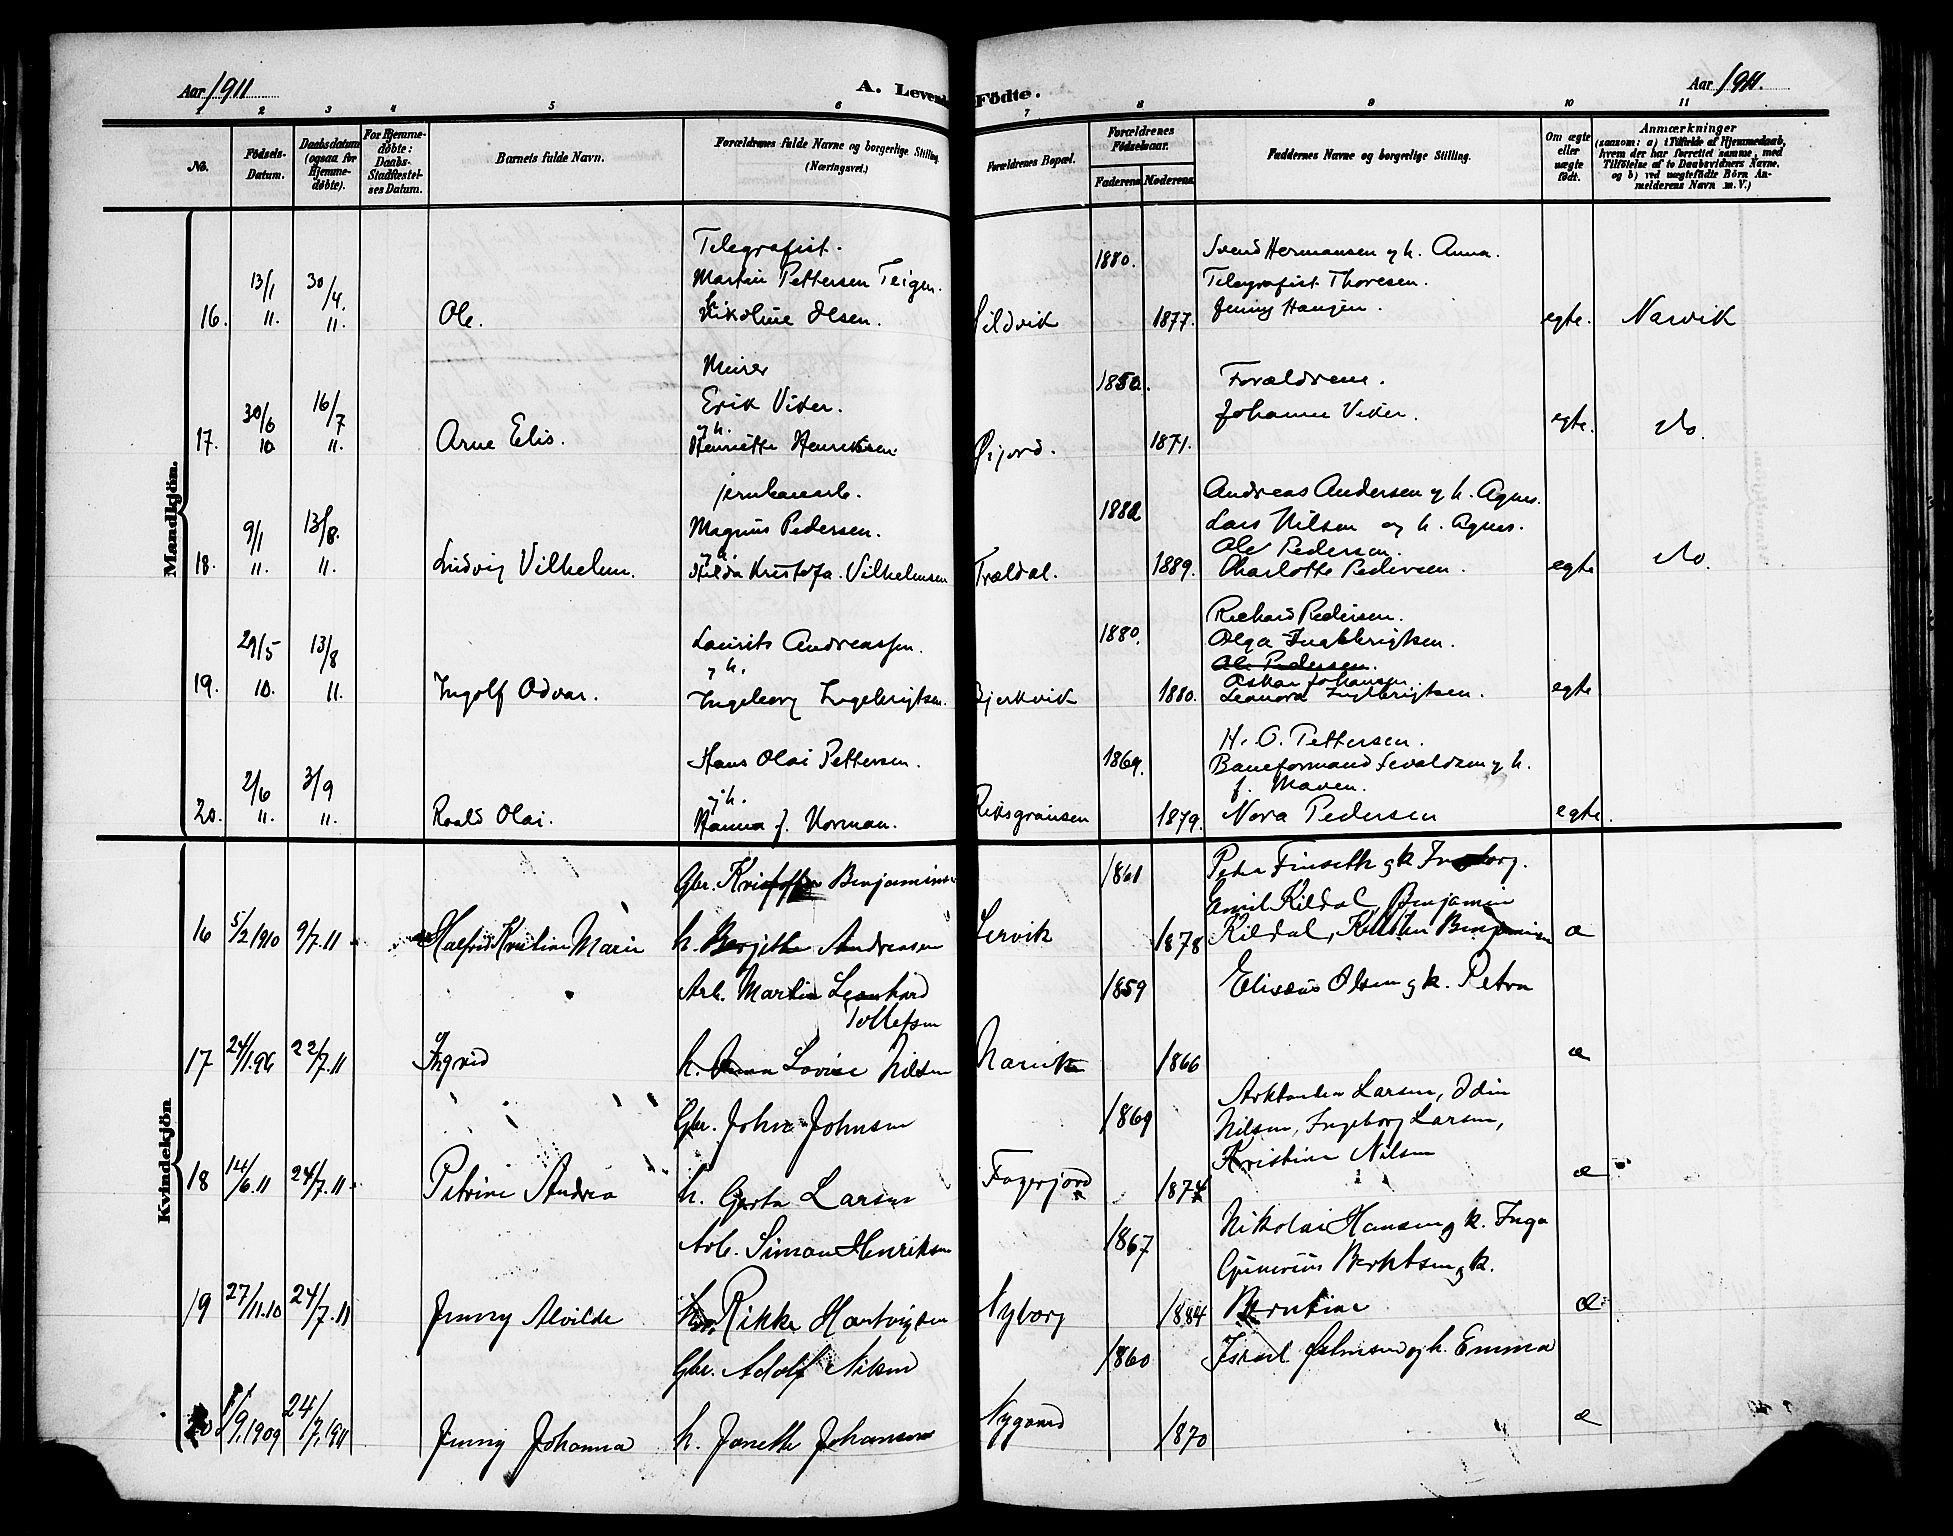 Aar 1911
A. Levende
Födte.
Aar 1911.
1 2 3 4 5 6 7 8 9 10 11
No.
Födsels-Datum.
Daabsdatum (ogsaa for Hjemmedøbte).
For Hjemmedøbte: Daabs-Stadfæstelses Datum.
Barnets fulde Navn.
Forældrenes fulde Navne og borgerlige Stilling. (Næringsvei.)
Forældrenes Bopæl.
Forældrenes Födselsaar.
Faderens. Moderens.
Faddernes Navne og borgerlige Stilling.
Om ægte eller uægte födt.
Anmærkninger
(saasom: a) i Tilfælde af Hjemmedaab,
hvem der har forrettet samme, med
Tilföielse af to Daabsvidners Navne,
og b) ved uægtefödte Börn An-
melderens Navn m. V.)
Mandkjön.
Telegrafist.
1880. Svend Hermansen og h. Anna.
13/1 30/4 Martin Pettersen Teigen. Telegrafist Thoresen.
16. 11. 11. Ole. Nikoline Olsen. Sildvik 1877. Jenny Hansen. egte. Narvik
Murer
1850. Forældrene.
30/6 16/7 Erik Viker. Johanne Viker.
og h.
17. 10. 11. Arne Elis. Henriette Henriksen. Øijord. 1871. egte. do.
jernbanearb.
1882 Andreas Andersen og h. Agnes.
9/1 13/8. Magnus Pedersen. Lars Nilsen og h. Agnes.
og h. Ole Pedersen.
18. 11. 11. Ludvig Vilhelm. Hilda Kristofa Vilhelmsen Trældal. 1889. Charlotte Pedersen. egte do.
Richard Pedersen.
29/5 13/8 Laurits Andreassen. 1880. Olga Ingebrigtsen.
og h. Ole Pedersen.
Oskar Johansen.
19. 10. 11. Ingolf Odvar. Ingeborg Ingebrigtsen. Bjerkvik 1880. Leonora Ingebrigtsen. egte
H. O. Pettersen.
2/6 3/9 Hans Olai Pettersen. 1869. Baneformand Sevaldsen og h.
og h. f. Maven.
20. 11. 11. Roald Olai. Hanna f. Norman. Riksgränsen 1879. Nora Pedersen egte.
Kvindekjön
Gbr. Kristoffer Benjaminsen 1861 Peter Finseth og k. Ingeborg.
Emil Kildal, Benjamin
16 5/2 1910 9/7.11 Halfrid Kristine Marie h. Berjithe Andreasen Lervik 1878 Kildal, Kirsten Benjaminsen æ
Arb. Martin Leonhard 1859 Elisæus Olsen og k. Petra
Tollefsen
17 24/1.96 22/7.11 Ingrid h. Anna Lovise Nilsen Narvik 1866 æ
Larsen, Odin
Gbr. John Johnsen 1869 Nilsen, Ingeborg Larsen,
Kristine Nilsen
18 14/6.11 24/7.11 Petrine Andrea h. Gerta Larsen Fagerjord 1874 æ
Arb. Simon Henriksen 1867 Nikolai Hansen og k. Inga
Gunerius Berntsen og k.
19 27/11.10 24/7.11 Jenny Alvilde h. Rikke Hartvigsen Nyborg 1884 Berntine æ
Gbr. Adolf Nilsen 1860 Israel Johnsen og h. Emma
20 1/9.1909 24/7.1911 Jenny Johanna h. Janette Johansen Nygaard 1870 æ